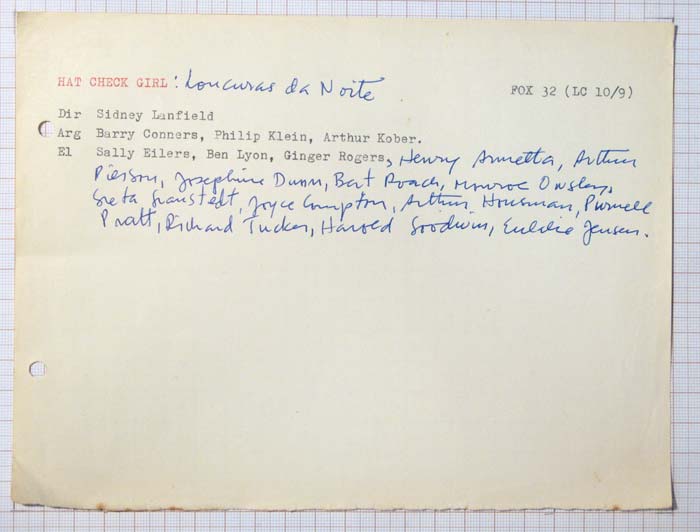 HAT CHECK GIRL : Loucuras da Noite FOX 32 (LC 10/9)
Dir Sidney Lanfield
Arg Barry Conners, Philip Klein, Arthur Kober.
El Sally Eilers, Ben Lyon, Ginger Rogers, Henry Armetta, Arthur
Pierson, Josephine Dunn, Bert Roach, Monroe Owsley,
Greta Granstedt, Joyce Compton, Arthur Housman, Purnell
Pratt, Richard Tucker, Harold Goodwin, Eulalie Jensen.